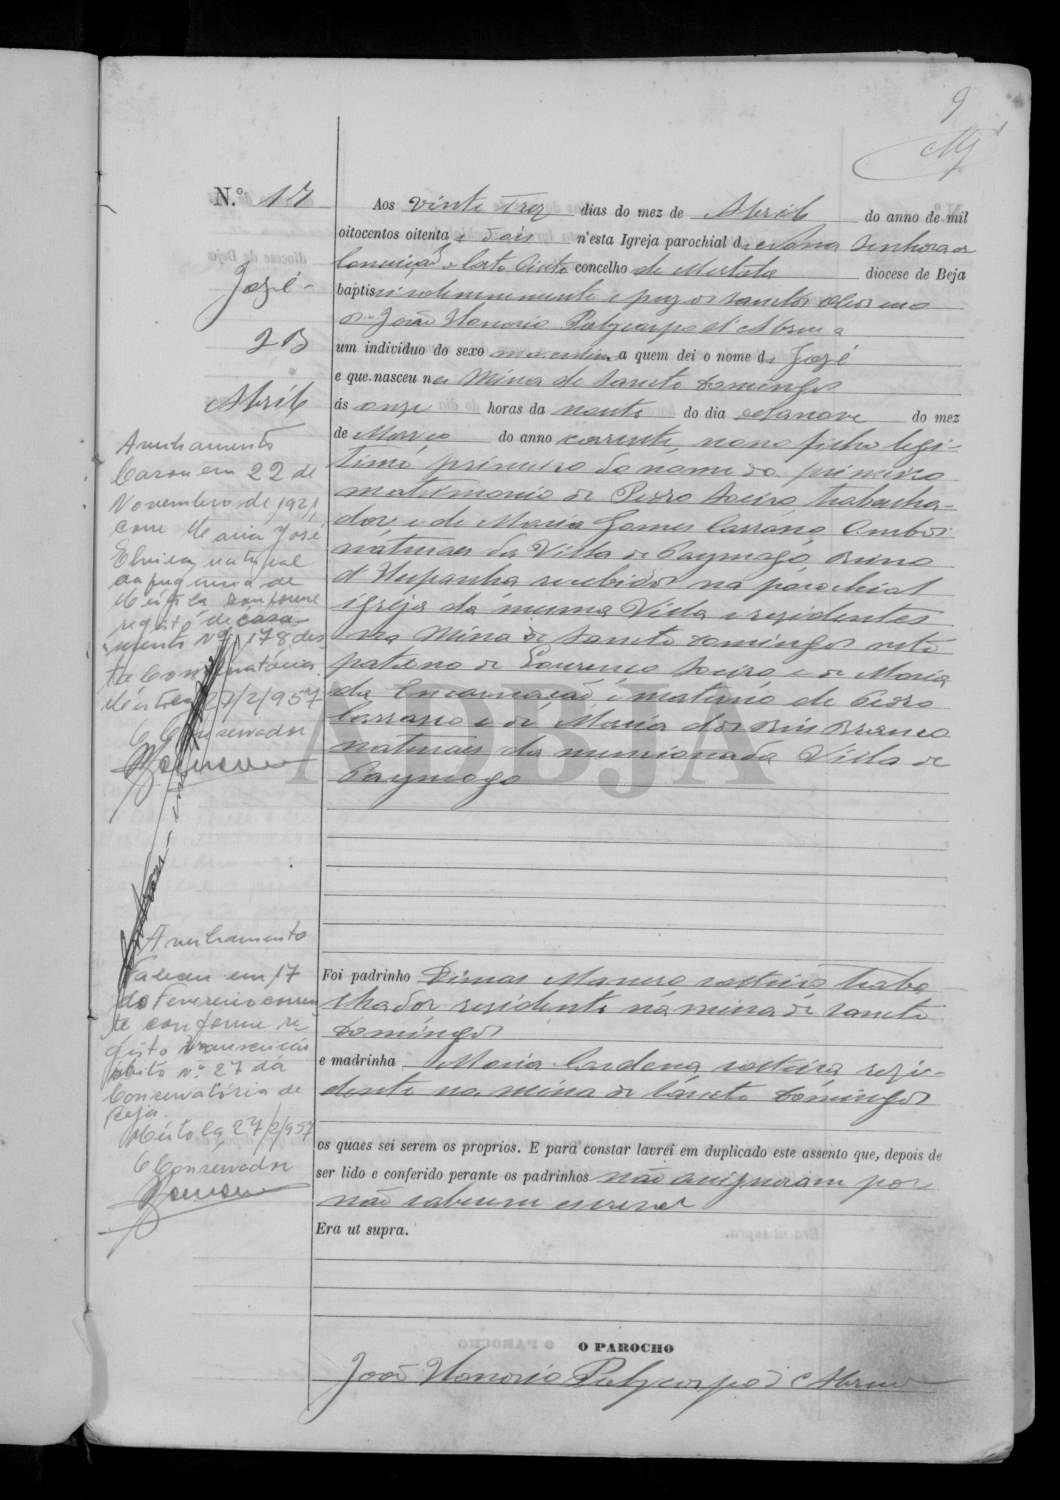 9
N.º 17
José
23
Abril
Aos vinte trez dias do mez de Abril do anno de mil
oitocentos oitenta e dois n'esta Igreja parochial de Nossa Senhora da
Conceição concelho de Mertola diocese de Beja
baptisei solemnemente e puz os Sanctos Oleos eu
João Honorio Polycarpo d'Abreu a
um individuo do sexo masculino a quem dei o nome de José
e que nasceu na Mina de Sancto Domingos
ás onze horas da noute do dia desanove do mez
de Março do anno corrente, nono filho legi-
timo primeiro do nome do primeiro
matrimonio de Pedro Soeiro trabalha-
dor, e de Maria Gomes Carrasco Ambos
naturaes da Villa de Paymogo Reino
d'Hespanha recebidos na parochial
igreja da mesma Villa e residentes
na Mina de Sancto Domingos neto
paterno de Lourenço Soeiro e de Maria
da Encarnação e materno de Pedro
Carrasco e de Maria dos Reis Branco
naturaes da mencionada Villa de
Paymogo
Averbamento
Casou em 22 de
Novembro de 1921
com Maria José
natural
da freguesia de
Mértola conforme
registo de casa-
mento nº 178 des-
ta Conservatória
Mértola 27/2/957
O Conservador
Averbamento
Faleceu em 17
de Fevereiro corren
te conforme re
gisto transcrição
óbito nº 27 da
Conservatória de
Beja.
Mértola, 27/2/957
O Conservador
Foi padrinho Dimas Manuel Rosteiro traba
lhador residente na mina de Sancto
Domingos
e madrinha Maria Cardena solteira resi-
dente na mina de Sancto Domingos
os quaes sei serem os proprios. E para constar lavrei em duplicado este assento que, depois de
ser lido e conferido perante os padrinhos não assignaram por
não saberem escrever
Era ut supra.
O PAROCHO
João Honorio Polycarpo d'Abreu
ADBJA